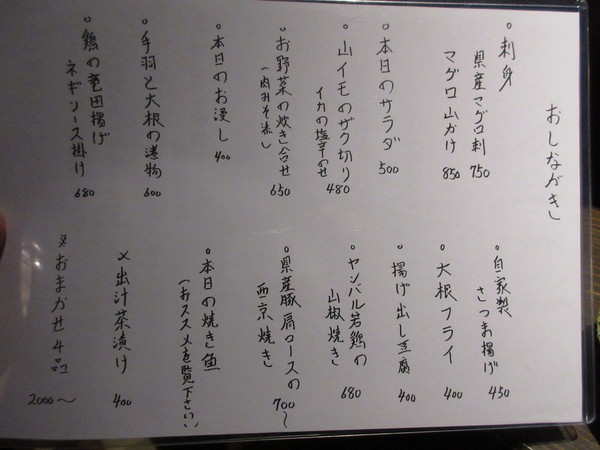 おしながき
○刺身
県産マグロ刺 750
マグロ山かけ 850
○本日のサラダ 500
○山イモのザク切り
イカの塩辛のせ 480
○お野菜の炊き合せ
(肉みそ添し) 650
○本日のお浸し 400
○手羽と大根の煮物 600
○鶏の竜田揚げ
ネギソース掛け 680
○自家製
さつま揚げ 450
○大根フライ 400
○揚げ出し豆腐 400
○ヤンバル若鶏の
山椒焼き 680
○県産豚肩ロースの
西京焼き 700〜
○本日の焼き魚
(おススメを覧下さい)
×出汁茶漬け 400
×おまかせ4品 2000〜